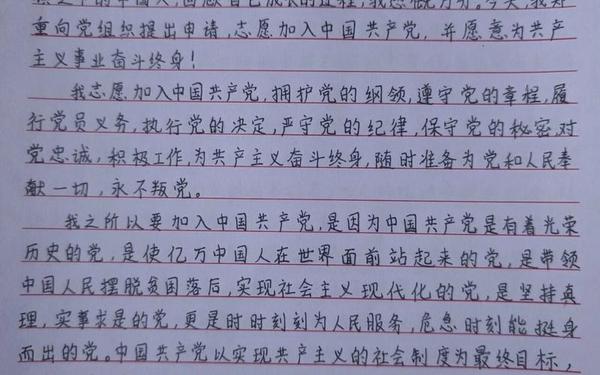 的中国人,回顾自己成长的过程,我感慨万分。今天,我郑
重向党组织提出申请,志愿加入中国共产党,并愿意为共产
主义事业奋斗终身!
我志愿加入中国共产党,拥护党的纲领,遵守党的章程,履
行党员义务,执行党的决定,严守党的纪律,保守党的秘密,对
党忠诚,积极工作,为共产主义奋斗终身,随时准备为党和人民奉
献一切,永不叛党。
我之所以要加入中国共产党,是因为中国共产党是有着光荣
历史的党,是使亿万中国人在世界面前站起来的党,是带领
中国人民摆脱贫困落后,实现社会主义现代化的党,是坚持真
理,实事求是的党,更是时时刻刻为人民服务,危急时刻能挺身
而出的党。中国共产党以实现共产主义的社会制度为最终目标,